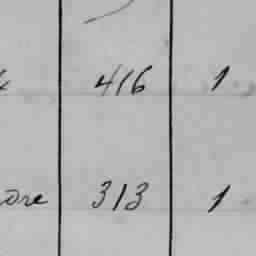 416 1
ore 313 1